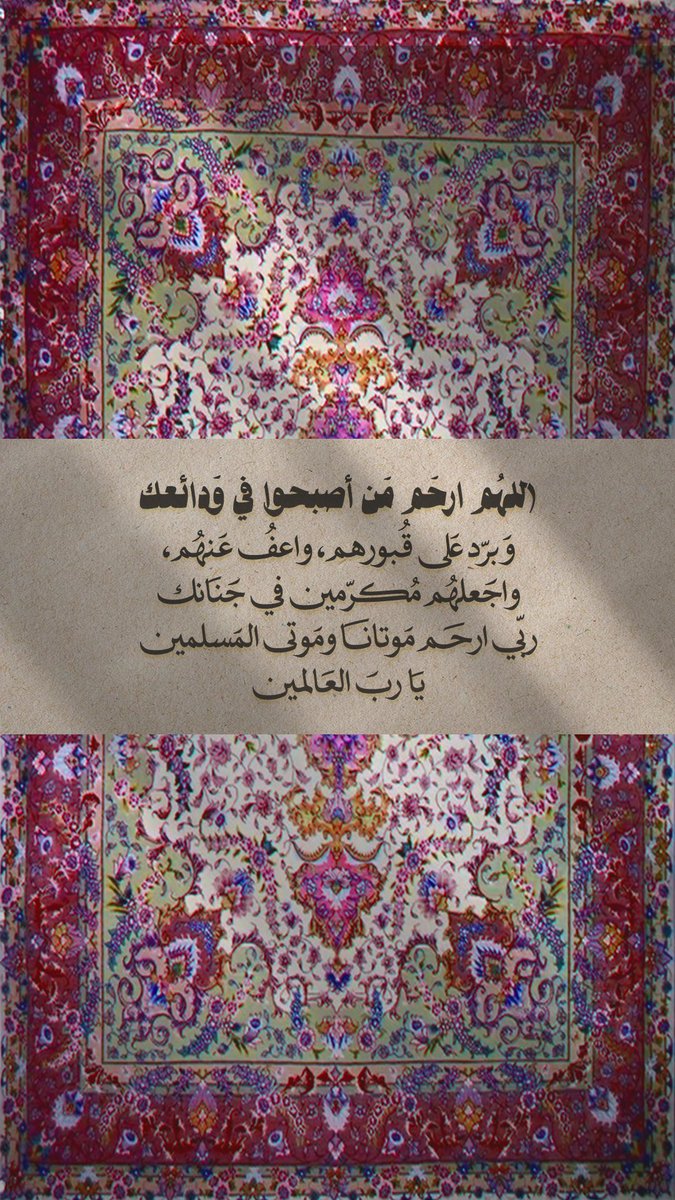 اللهُم ارحَم مَن أصبحوا في وَدائعك
وَبرّد عَلى قُبورهم، واعفُ عَنهُم،
واجَعلهُم مُكرّمين في جَنَانك
ربّي ارحَم مَوتانَا ومَوتى المَسلمين
يَا ربَ العَالمين